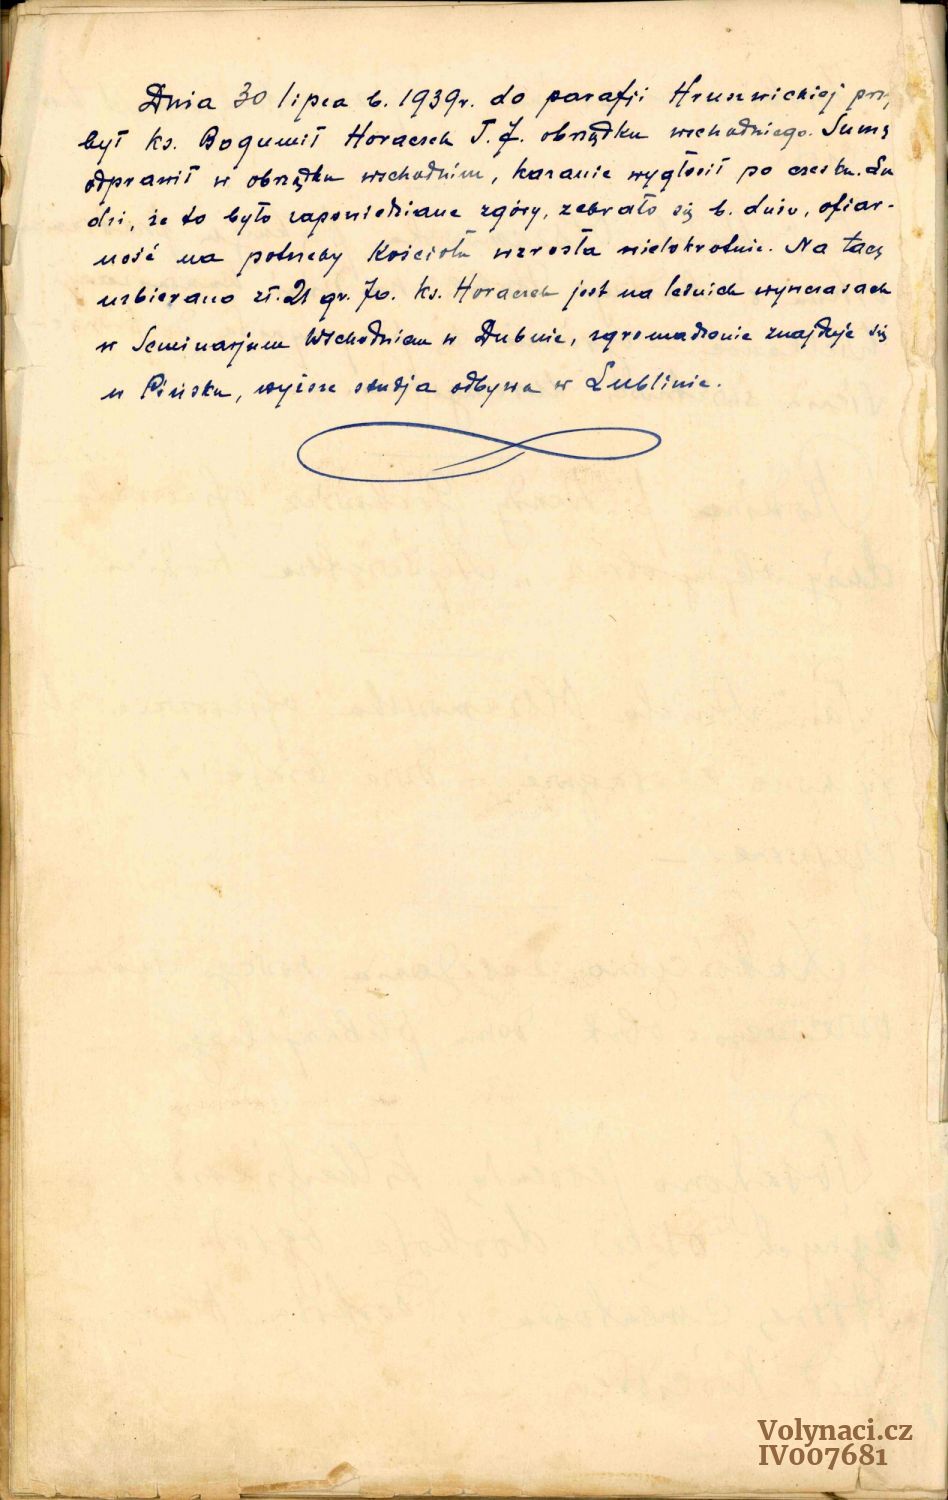 Dnia 30 lipca b. 1939r. do parafji Hruszwickiej przy
był ks. Bogumił Horaczek T. J. obrządku wschodniego. Sumę
odprawił w obrządku wschodnim, kazanie wygłosił po czesku. Lu
dzi, że to było zapowiedziane zgóry, zebrało się b. dużo, ofiar-
ność na potrzeby Kościoła wzrosła wielokrotnie. Na tacę
uzbierano zł. 21 gr. 70. Ks. Horaczek jest na letnich wywczasach
w Seminarjum Wschodniem w Dubnie, zgromadzenie znajduje się
w Pińsku, wyższe studja odbywa w Lublinie.
Volynaci.cz
IV007681